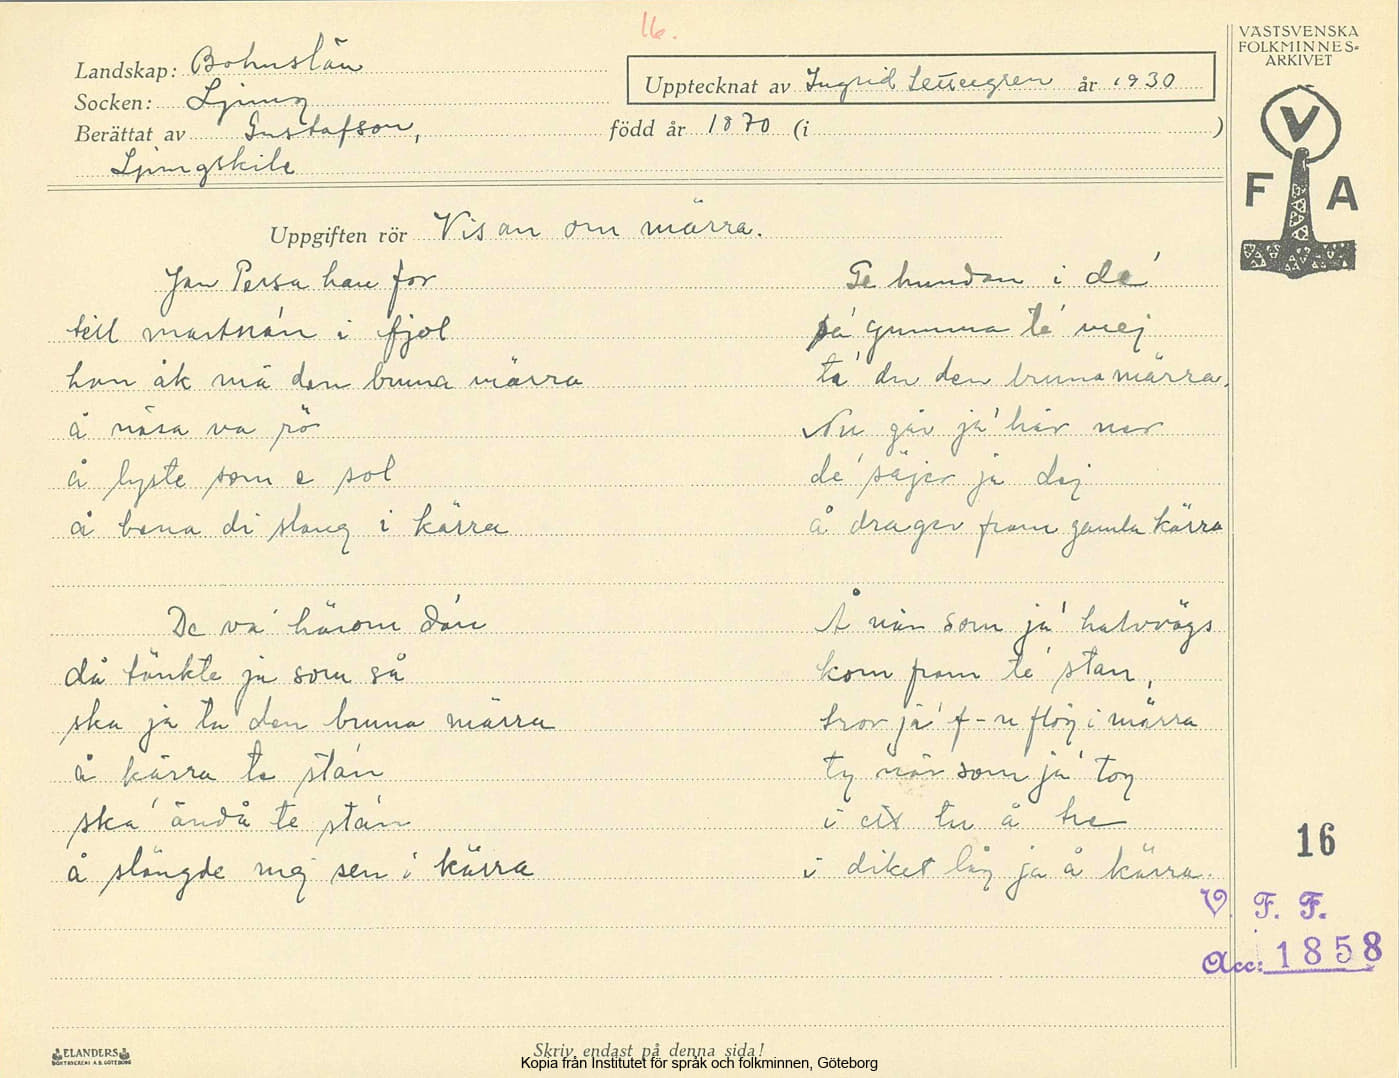 16.
Landskap: Bohuslän
Socken: Ljung
Berättat av Gustafson,
Ljungskile
Upptecknat av Ingrid år 1930
född år 1870 (i )
VÄSTSVENSKA
FOLKMINNES-
ARKIVET
V
F A
Uppgiften rör Visan om märra.
Jan Persa han for
till martnán i fjol
han åk mä den bruna märra
å näsa va rö
å lyste som e sol
å bena di slang i kärra
De va' härom dán
då tänkte ja som så
ska ja ta den bruna märra
å kärra te stán
ska' ändå te stán
å slängde mej sen i kärra
Ge hundan i de'
sa' gumma te' mej
ta' du den bruna märra.
Nu går ja' här ner
de' säjer ja dej
å drager fram gamla kärra
Å när som ja' halvvägs
kom fram te' stan,
tror ja' f-n flög i märra
ty när som ja' tog
i ett tu å tre
i diket låg ja å kärra.
16
V. F. F.
Acc: 1858
ELANDERS
BOKTRYCKERI A.B. GÖTEBORG
Skriv endast på denna sida!
Kopia från Institutet för språk och folkminnen, Göteborg